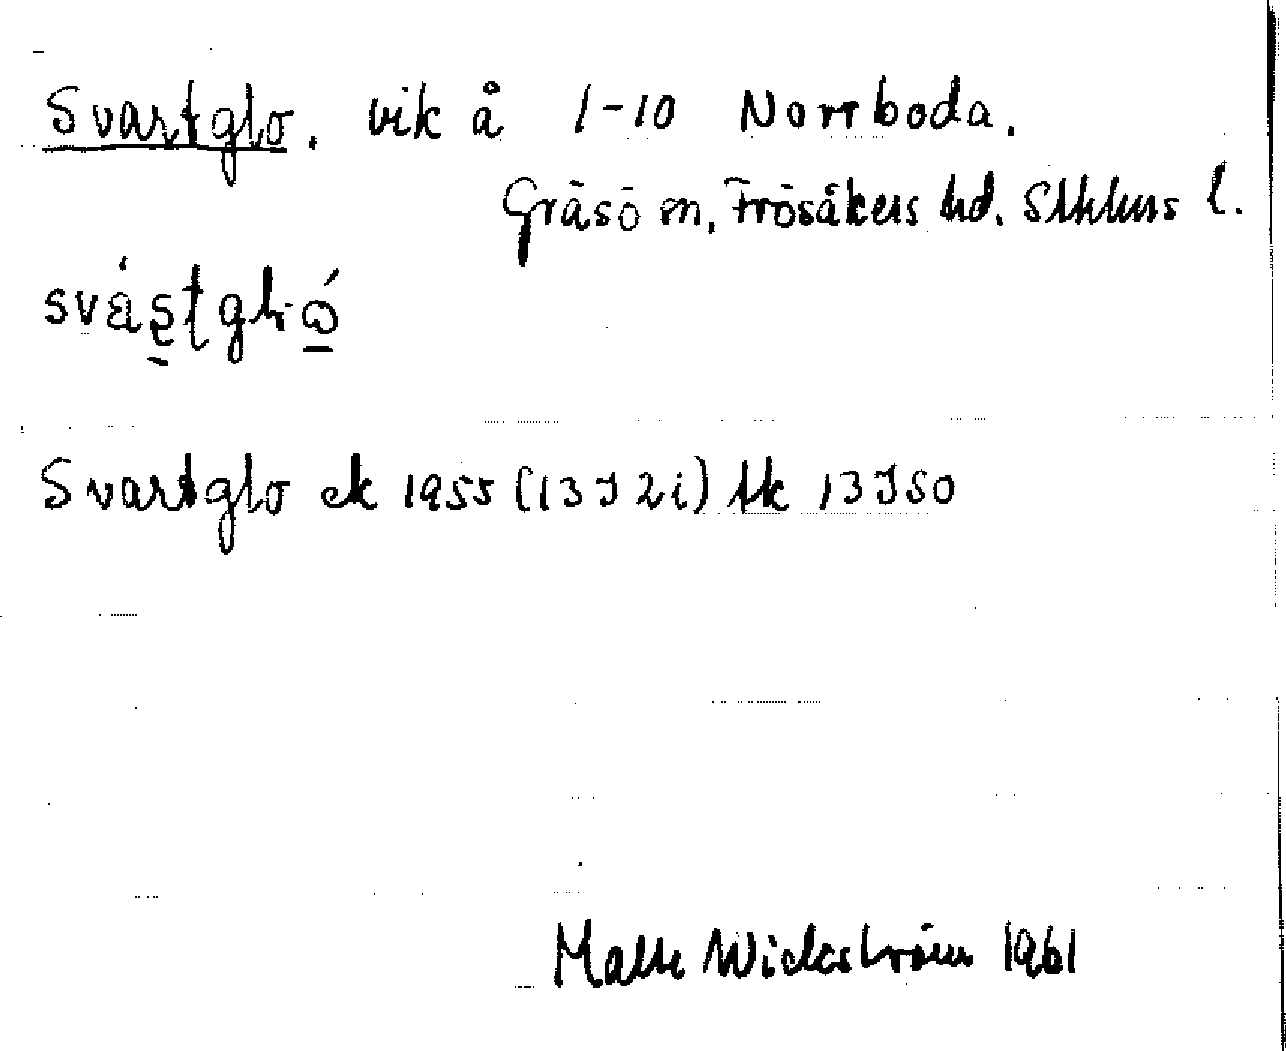 Svartglo. vik å 1-10 Norrboda.
Gräsö sn, Frösåkers hd. Sthlms l.
Svartglo ek 1955 (13J2i) tk 13JSO
Malte Wickström 1961